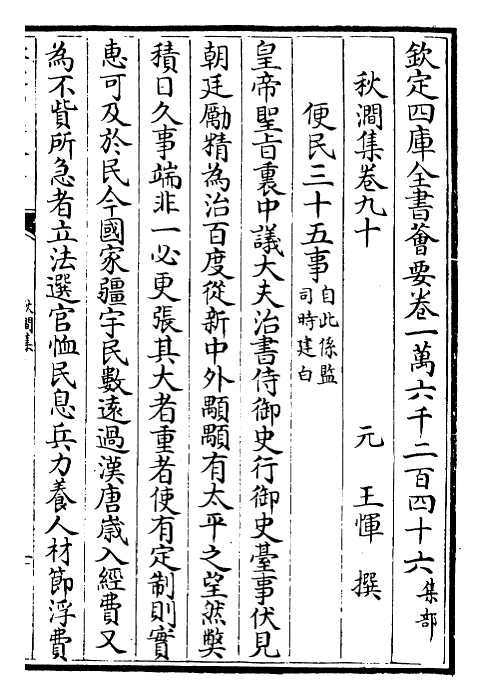 欽定四庫全書薈要卷一萬六千二百四十六集部
秋澗集卷九十　元　王惲　撰
便民三十五事自此係監司時建白
皇帝聖旨裏中議大夫治書侍御史行御史臺事伏見
朝廷勵精為治百度從新中外顒顒有太平之望然弊
積日久事端非一必更張其大者重者使有定制則實
惠可及於民今國家疆宇民數遠過漢唐歲入經費又
為不貲所急者立法選官恤民息兵力養人材節浮費
秋澗集